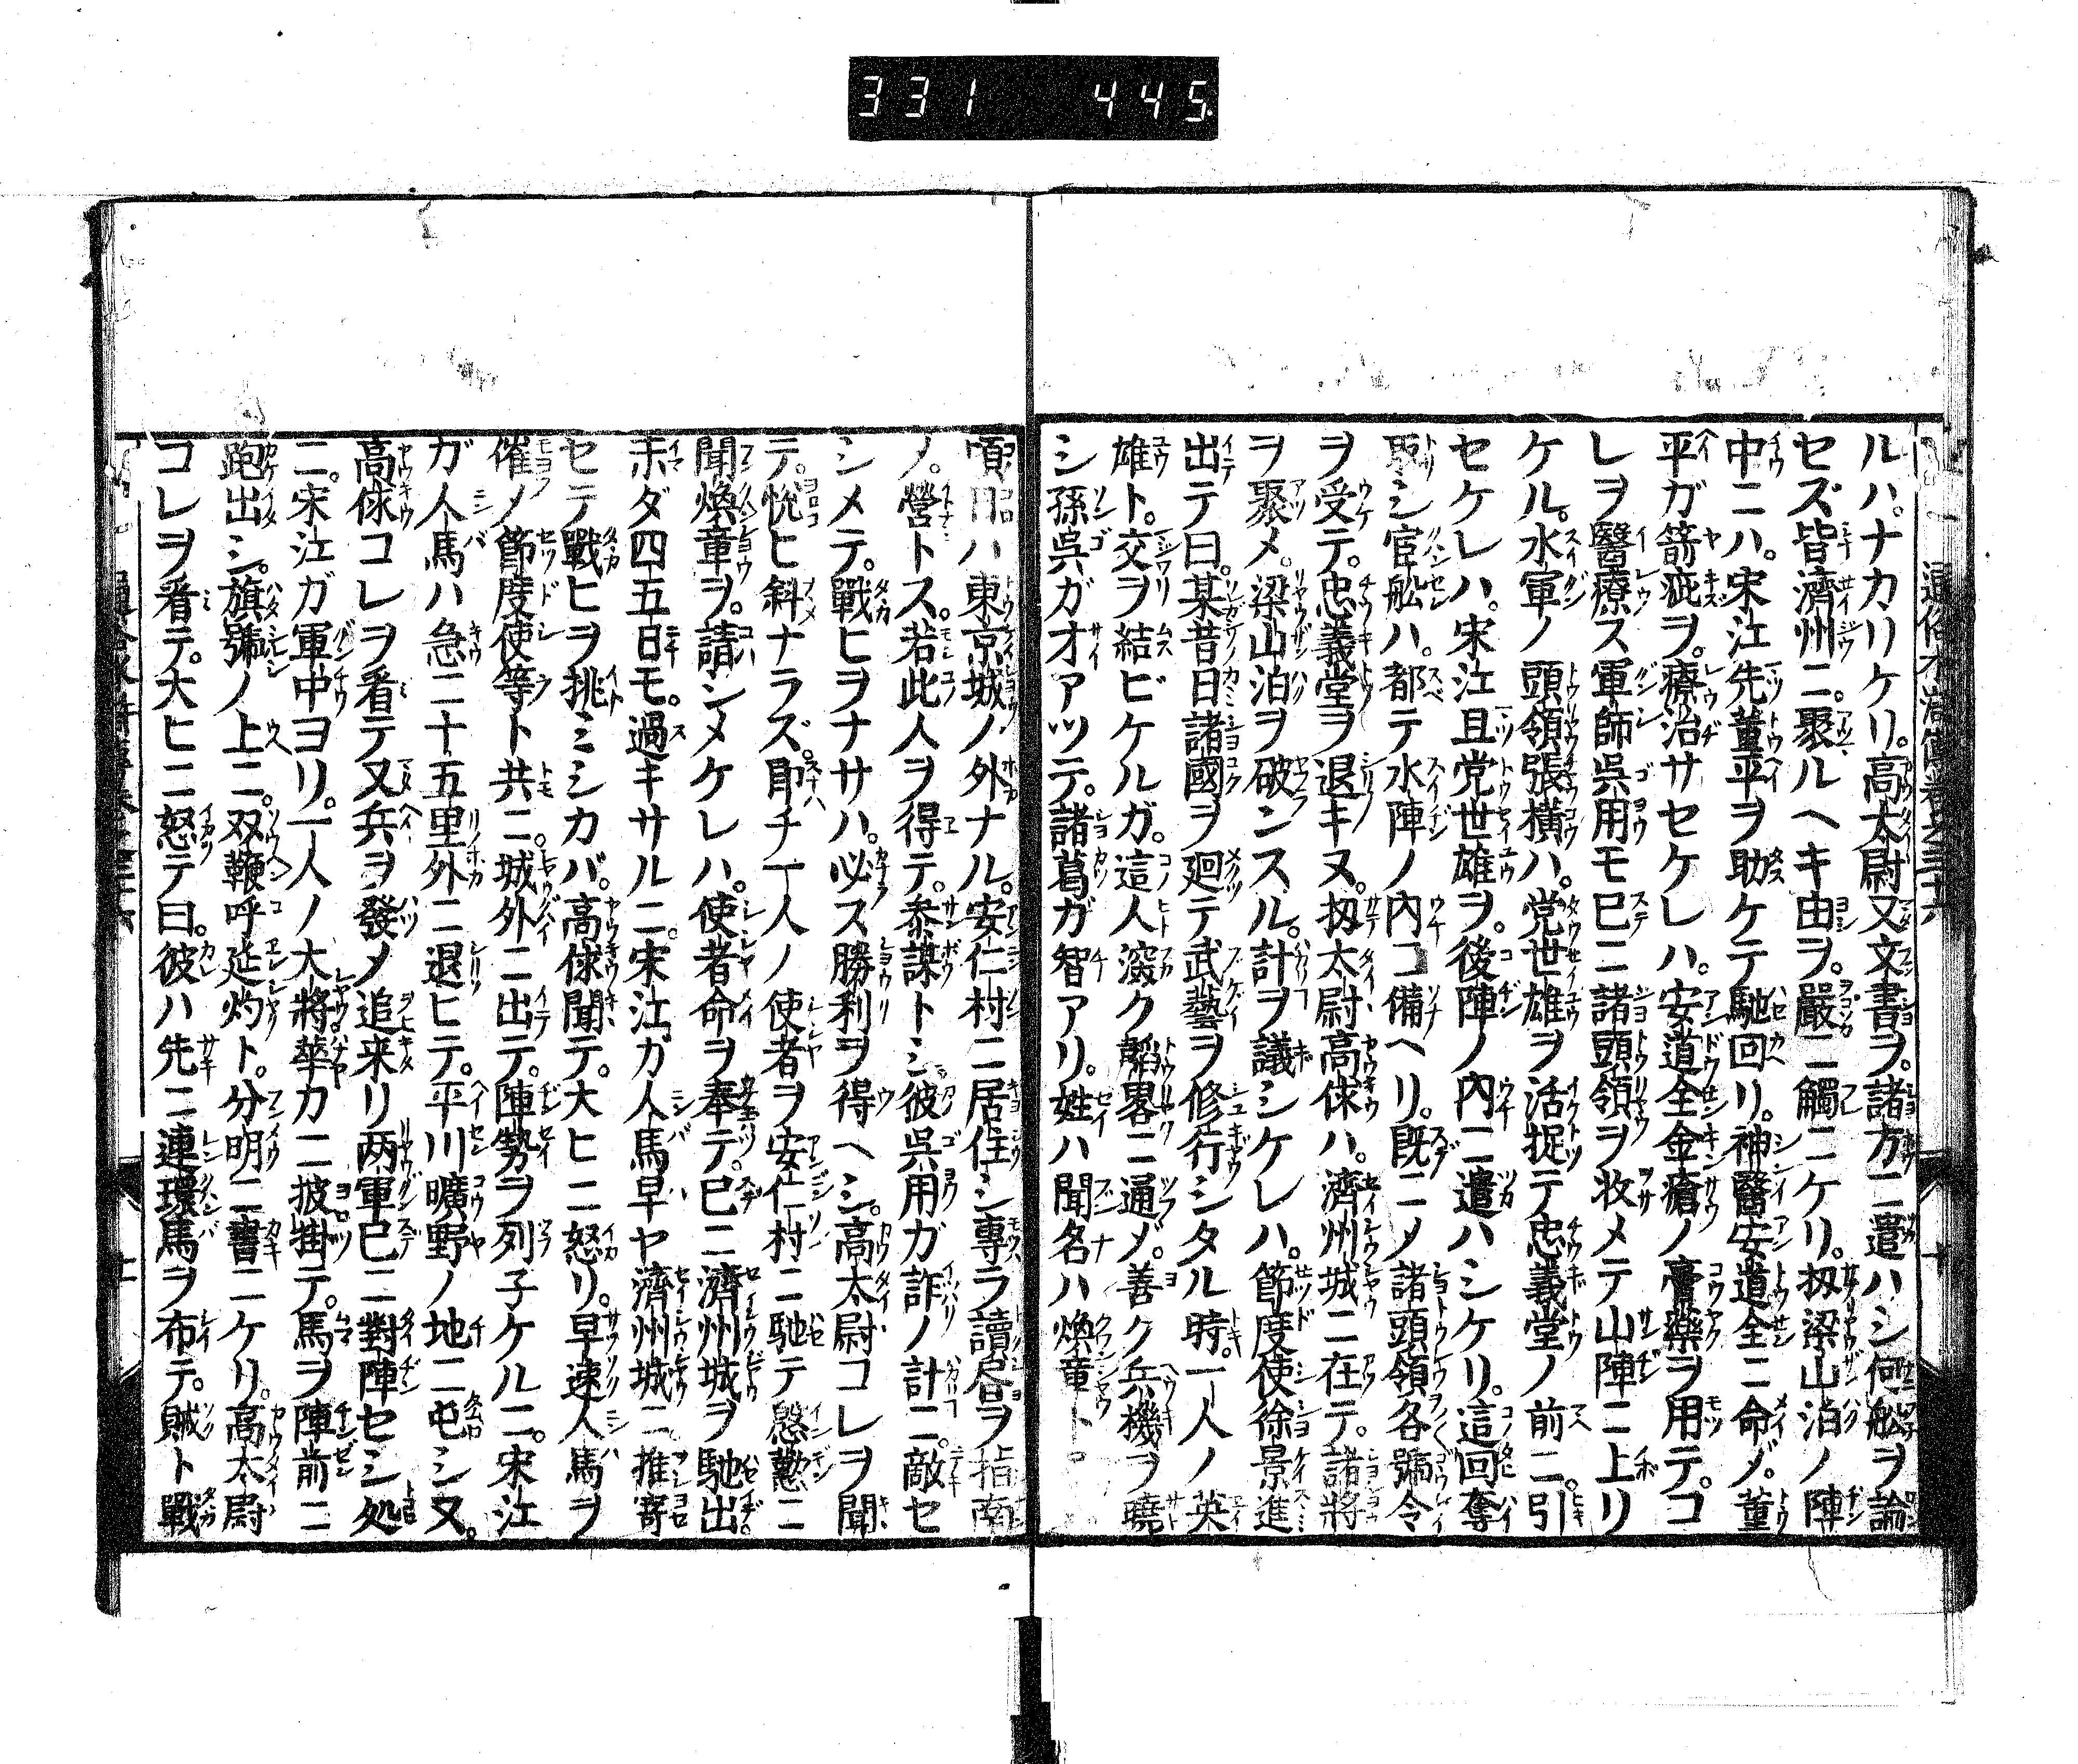 331 445
ルハ。ナカリケリ。高太尉又文書ヲ。諸方ニ遣ハシ何舩ヲ論
セズ皆濟州ニ。聚ルヘキ由ヲ。嚴ニ觸ニケリ。扨梁山泊ノ陣
中ニハ。宋江先董平ヲ助ケテ馳回リ。神醫安道全ニ命メ。董
平ガ箭疵ヲ。療治サセケレハ。安道全金瘡ノ膏藥ヲ用テ。コ
レヲ醫療ス軍師呉用モ已ニ諸頭領ヲ收メテ山陣ニ上リ
ケル。水軍ノ頭領張橫ハ。党世雄ヲ活捉テ忠義堂ノ前ニ。引
セケレハ。宋江且党世雄ヲ。後陣ノ內ニ遣ハシケリ。這回奪
取シ官舩ハ。都テ水陣ノ内コ備ヘリ。既ニメ諸頭領各號令
ヲ受テ。忠義堂ヲ退キヌ。扨太尉高俅ハ。濟州城ニ在テ。諸將
ヲ聚メ。梁山泊ヲ破ンスル。計ヲ議シケレハ。節度使徐景進
出テ曰。某昔日諸國ヲ廻テ武藝ヲ修行シタル時。一人ノ英
雄ト。交ヲ結ビケルガ。這人深ク韜畧ニ通メ。善ク兵機ヲ曉
シ孫呉ガオアツテ。諸葛ガ智アリ。姓ハ聞名ハ煥章ト
頃日ハ東京城ノ外ナル。安仁村ニ居住シ專ラ讀書ヲ指南
ノ。營トス。若此人ヲ得テ。叅謀トシ。彼呉用ガ詐ノ計ニ。敵セ
シメテ。戰ヒヲナサハ。必ス勝利ヲ得ヘシ。高太尉コレヲ聞
テ。悅ヒ斜ナラズ。即チ一人ノ使者ヲ安仁村ニ馳テ慇懃ニ
聞煥章ヲ。請ンメケレハ。使者命ヲ奉テ。已ニ濟州城ヲ馳出
未ダ四五日モ。過キサルニ。宋江ガ人馬早ヤ濟州城ニ推寄
セテ戰ヒヲ挑ミシカバ。高俅聞テ。大ヒニ怒リ。早速人馬ヲ
催ノ節度使等ト共ニ。城外ニ出テ。陣勢ヲ列子ケルニ。宋江
ガ人馬ハ急ニ十五里外ニ退ヒテ。平川曠野ノ地ニ屯シ又。
高俅コレヲ看テ又兵ヲ發メ追来リ両軍已ニ對陣セシ処
ニ。宋江ガ軍中ヨリ。一人ノ大將華カニ披掛テ。馬ヲ陣前ニ
跑出シ。旗號ノ上ニ。双鞭呼延灼ト。分明ニ書ニケリ。高太尉
コレヲ看テ。大ヒニ怒テ曰。彼ハ先ニ連環馬ヲ布テ。賊ト戰